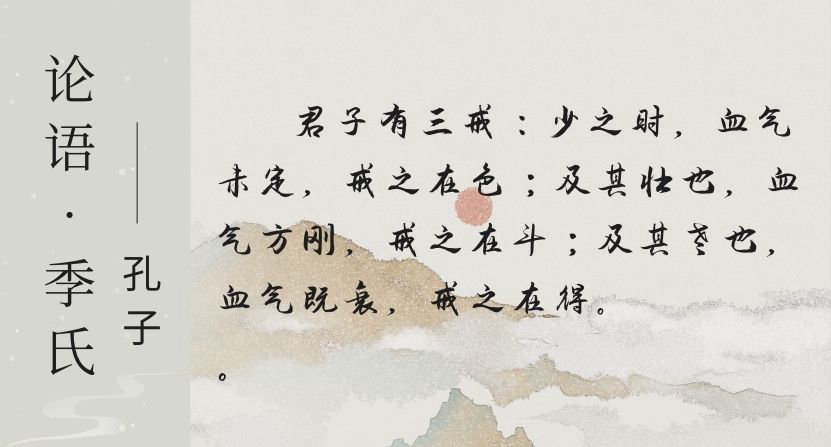 论语·季氏
——孔子
君子有三戒：少之时，血气
未定，戒之在色；及其壮也，血
气方刚，戒之在斗；及其老也，
血气既衰，戒之在得。
。